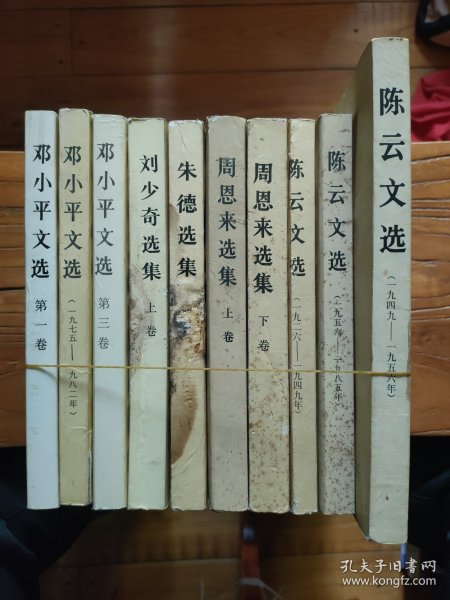 邓小平文选 第一卷
邓小平文选 (一九七五——一九八二年)
邓小平文选 第三卷
刘少奇选集 上卷
朱德选集
周恩来选集 上卷
周恩来选集 下卷
陈云文选 (一九二六——一九四九年)
陈云文选 (一九五六——一九八五年)
陈云文选 (一九四九——一九五六年)
孔夫子旧书网
www.kongfz.com